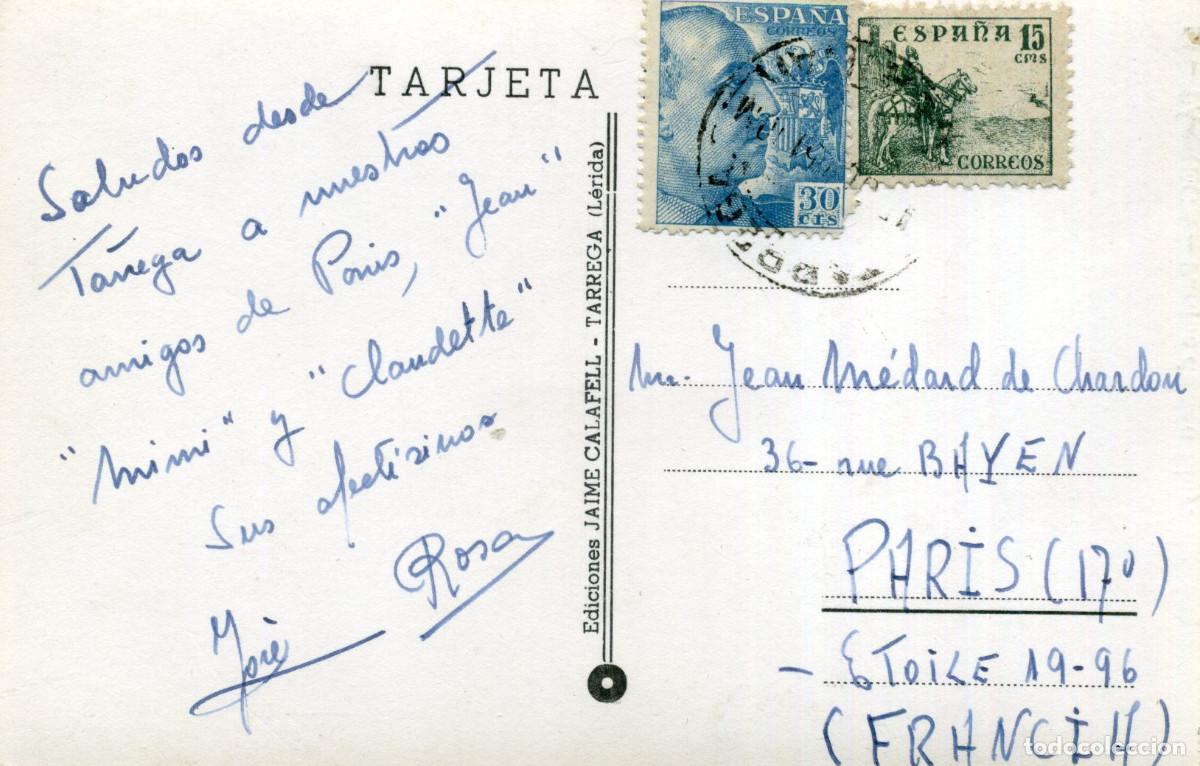 TARJETA
Saludos desde
Tárrega a nuestros
amigos de Paris, "Jean"
"Mimi" y "Claudette"
Sus afectísimos
José Rosa
Ediciones JAIME CALAFELL - TARREGA (Lérida)
ESPAÑA
CORREOS
30
CTS
ESPAÑA 15
cms
CORREOS
Mr. Jean Médard de Chardon
36- rue BAYEN
PARIS (17º)
- ETOILE 19-96
(FRANCIA)
todocoleccion